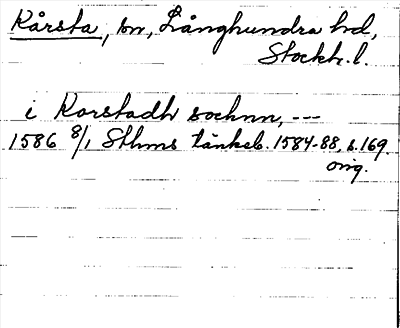 Kårsta, sn, Långhundra hd,
Stockh. l.
i Korstadh sochnn, ---
1586 8/1 Sthms tänkeb. 1584-88, s. 169.
orig.